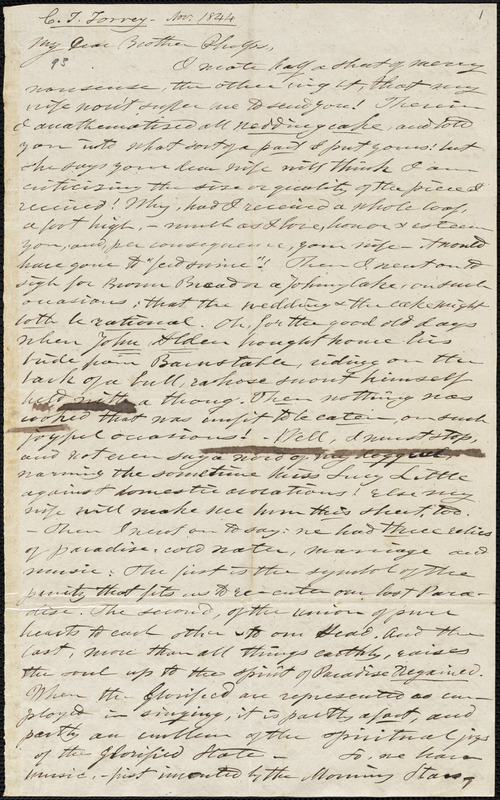 C. T. Torrey - Nov. 1844
1
My Dear Brother Phelps,
93
I wrote half a sheet of merry
nonsense, the other night, that my
wife won't suffer me to send you! Therein
I anathematised all wedding cake, and told
you into what sort of a past I put yours! but
she says your dear wife will think I am
criticising the size or quality of the piece I
received! Why, had I received a whole loaf,
a foot high, - much as I love, honor & esteem
you, and, per consequence, your wife - it would
have gone to "feed swine"! Then I went on to
sigh for Brown Bread or a Johny Cake, on such
occasions; that the wedding & the cake might
both be rational. Oh, for the good old days
when John Alden brought home his
bride from Barnstable, riding on the
back of a bull, whose snout himself
held with a thong. When nothing was
that was unfit to be eaten, on such
joyful occasions! - Well, I must stop,
and not even say a word of my doggerel
warning the sometime Miss Lucy Little
against domestic avocations! Else my
wife will make me burn this sheet, too.
- Then I went on to say: we had three relics
of paradise, cold water, marriage and
music. The first is the symbol of the
purity that fits us to re-enter our lost Para-
dise. The second, of the union of pure
hearts to each other & to our Head. And the
last, more than all things earthly, raises
the soul up to the spirit of Paradise Regained.
When the Glorified are represented as em-
ployed in singing, it is partly a fact, and
partly an emblem of the spiritual joys
of the Glorified State - So, we have
music, - first invented by the Morning Stars,